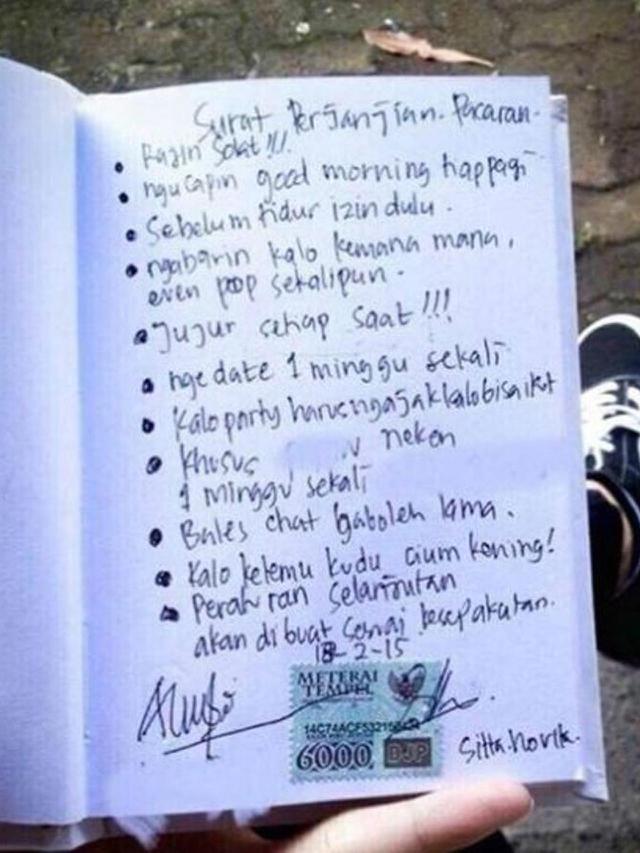 Surat Perjanjian Pacaran.
• Rajin Solat!!!
• ngucapin good morning happagi
• Sebelum tidur izin dulu.
• ngabarin kalo kemana mana,
even poop sekalipun.
• Jujur setiap saat!!!
• ngedate 1 minggu sekali
• Kalo party harus ngajak kalo bisa ikut
• Khusus nekon
1 minggu sekali
• Bales chat gaboleh lama.
• Kalo ketemu kudu cium kening!
• Peraturan selanjutan
akan dibuat sesuai kesepakatan.
18-2-15
METERAI
TEMPEL
6000 DJP
Sitta.Novita.